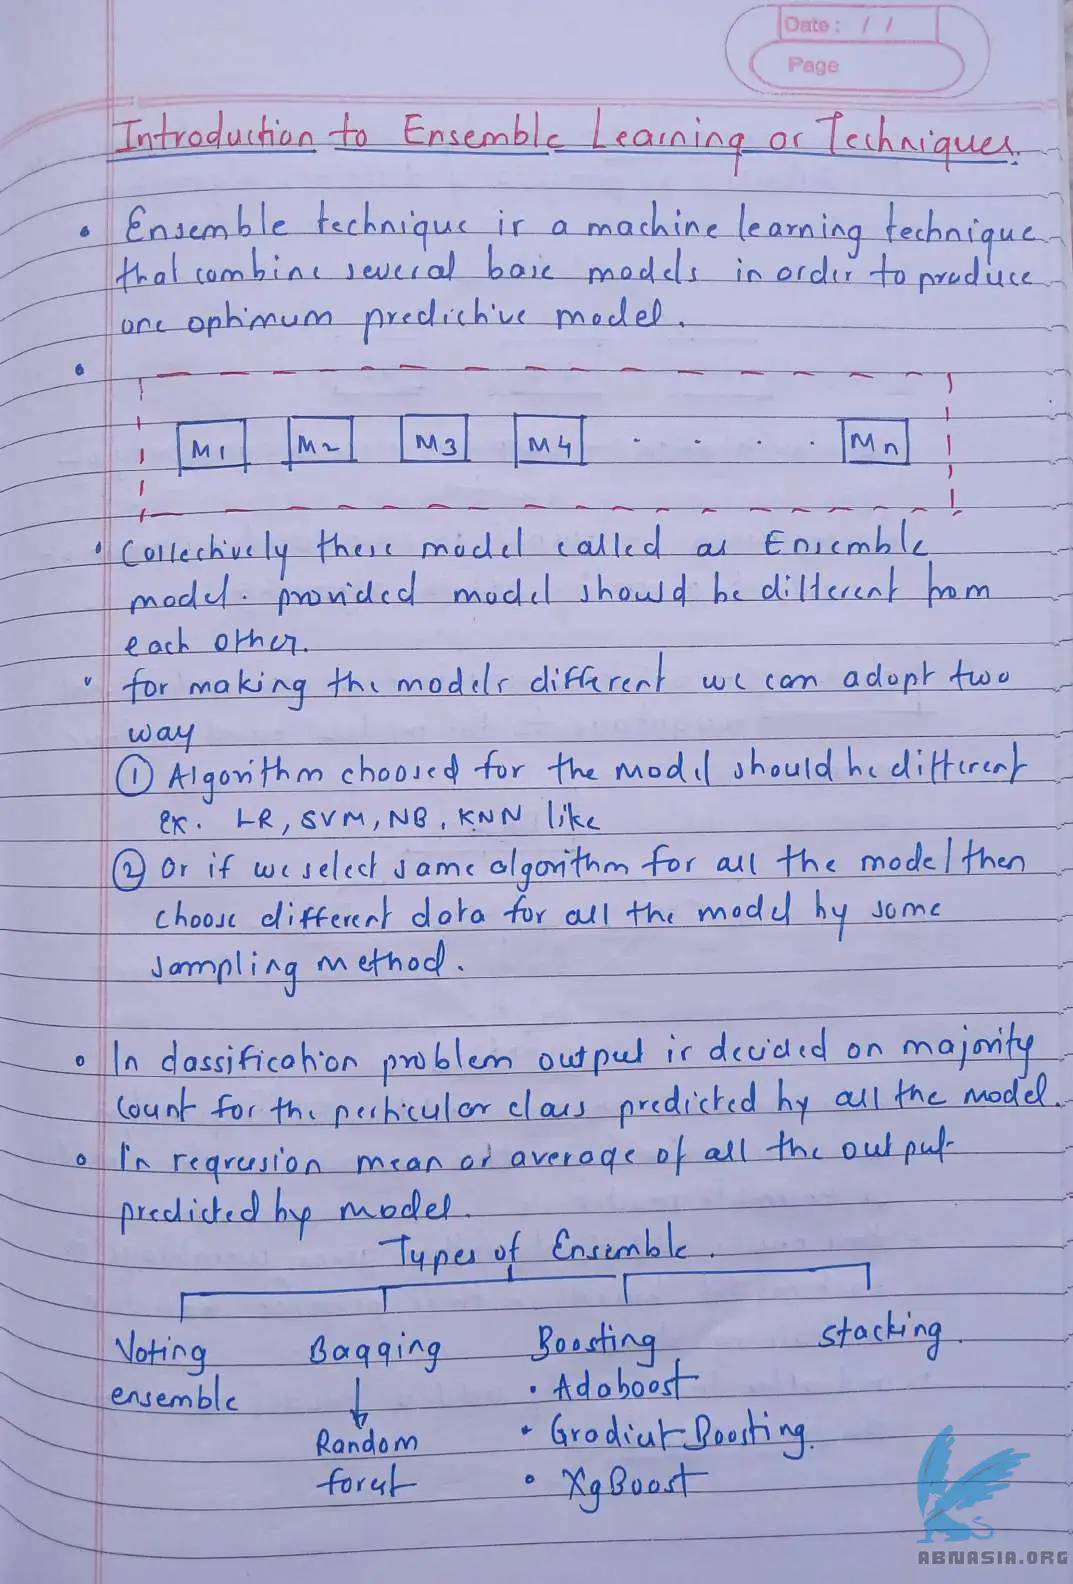 Date: / /
Page
Introduction to Ensemble Learning or Techniques.
• Ensemble technique is a machine learning technique
that combine several base models in order to produce
one optimum predictive model.
•
M1 M2 M3 M4 . . . . Mn
• Collectively these model called as Ensemble
model. provided model should be different from
each other.
• for making the models different we can adopt two
way
① Algorithm choosed for the model should be different
ex. LR, SVM, NB, KNN like
② Or if we select same algorithm for all the model then
choose different data for all the model by some
sampling method.
• In classification problem output is decided on majority
count for the perticular class predicted by all the model.
• In regression mean or average of all the output
predicted by model.
Types of Ensemble.
Voting Bagging Boosting Stacking.
ensemble • Adaboost
Random • Gradiut Boosting.
forest • XgBoost
ABNASIA.ORG